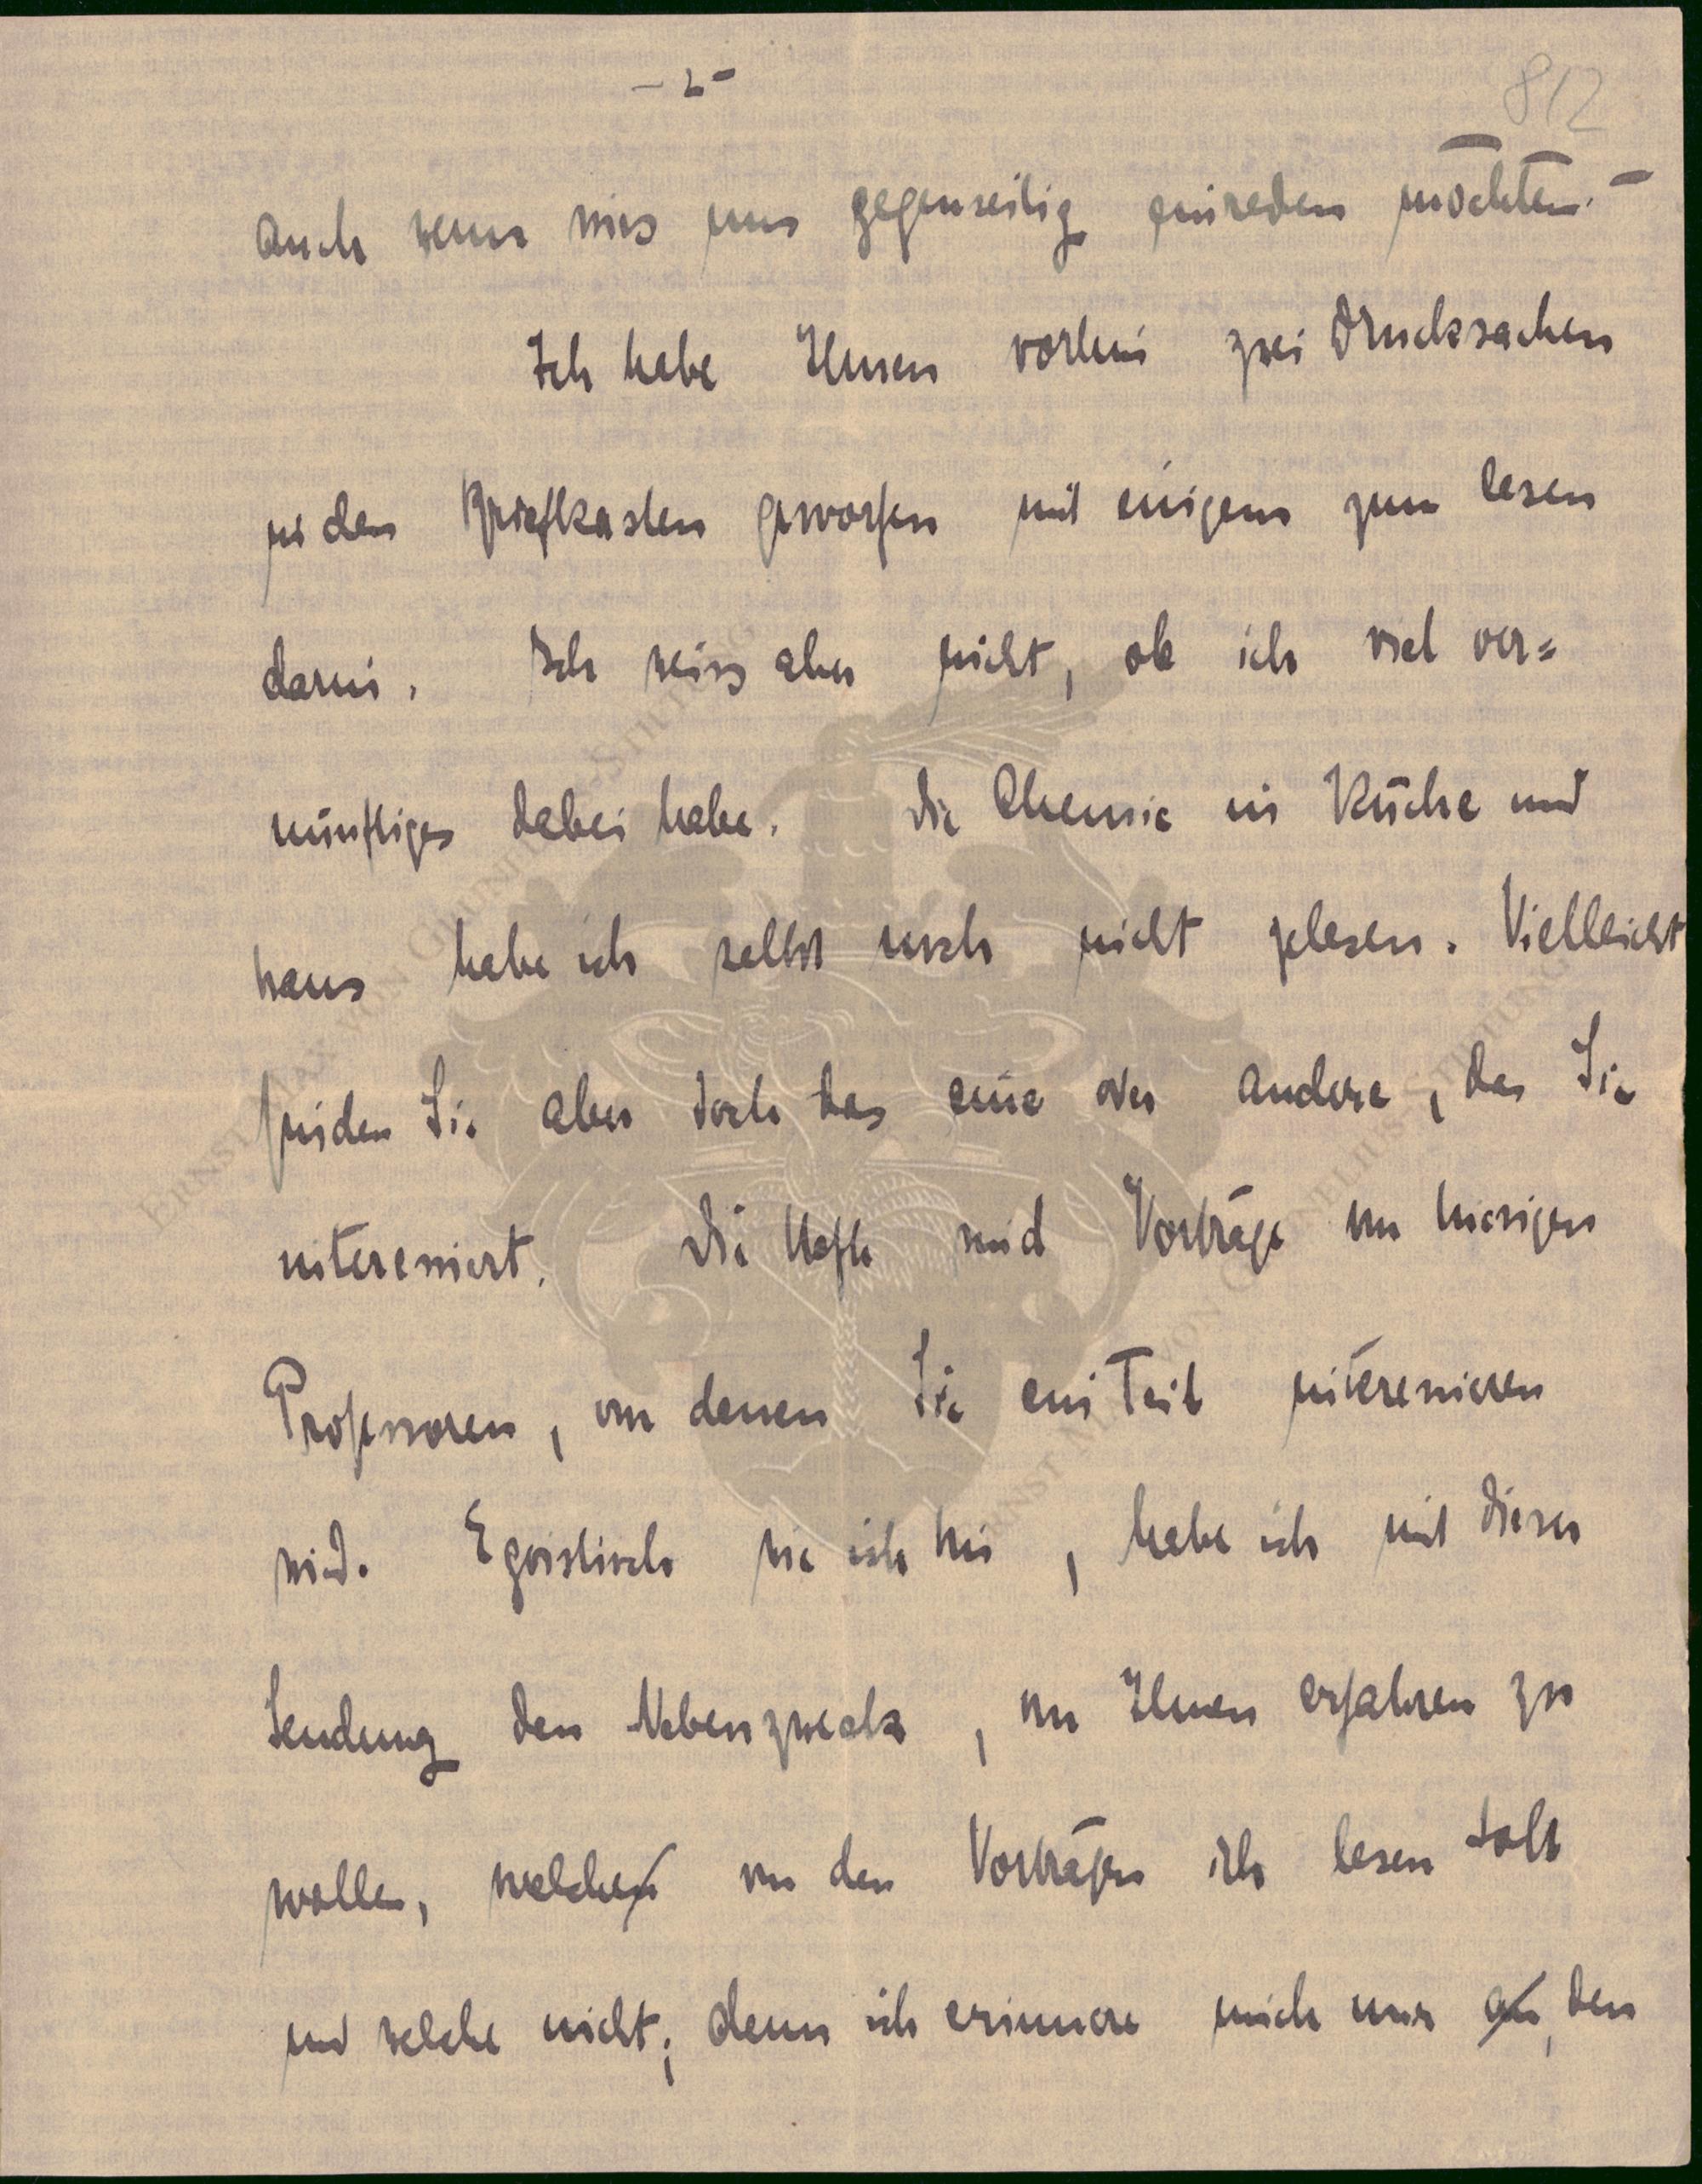 - 2 -
812
auch wenn wir's uns gegenseitig einreden möchten. -
Ich habe Ihnen vorhin zwei Drucksachen
in den Briefkasten geworfen mit einigem zum lesen
darin. Ich weiss aber nicht, ob ich viel ver=
nünftiges dabei habe. Die Chemie in Küche und
haus habe ich selbst noch nicht gelesen. Vielleicht
finden Sie aber doch das eine oder andere, das Sie
interessiert. Die Hefte sind Vorträge von hiesigen
Professoren, von denen Sie ein Teil interessieren
wird. Egoistisch wie ich bin, habe ich mit dieser
Sendung den Nebenzweck, von Ihnen erfahren zu
wollen, welche von den Vorträgen ich lesen soll
und welche nicht; denn ich erinnere mich nur an, den
ERNST MAX VON GRUNELIUS-STIFTUNG
ERNST MAX VON GRUNELIUS-STIFTUNG